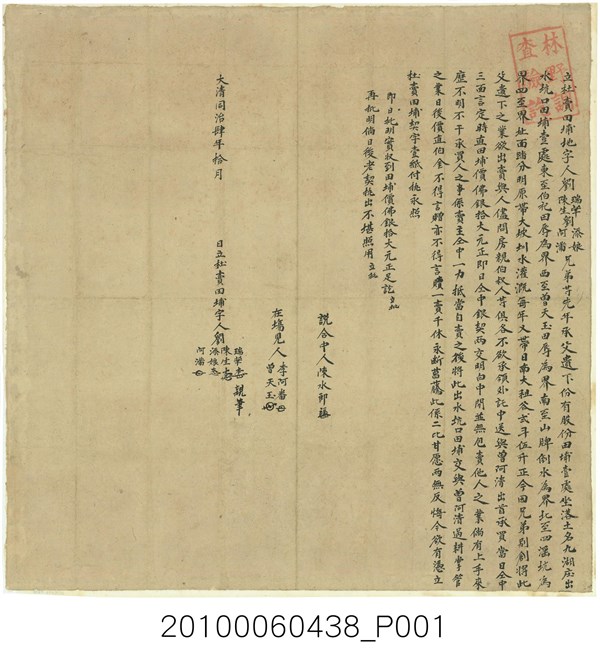 立杜賣田埔地字人劉瑞榮添娘陳生劉阿滿兄弟等先年承父遺下份有股份田埔壹處坐落土名九湖庄出
水坑口田埔壹處東至伯礼田唇為界西至曾天玉田唇為界南至山牌倒水為界北至四湣坑為
界四至界址面踏分明原帶大坡圳水灌溉每年又帶日南大租谷玄斗伍升正今因兄弟別創將此
父遺下之業欲出賣與人儘問房親伯叔人等俱各不欲承領外託中送與曾阿清出首承買當日仝中
三面言定時直田埔價佛銀拾大元正即日仝中銀契兩交明白中間並無包賣他人之業倘有上手來
歷不明不干承買人之事係賣主仝中一力抵當自賣之後將此出水坑口田埔交與曾阿清過耕掌管
之業日後價直伯金不得言贈亦不得言贖一賣千休永斷葛藤此係二比甘愿兩無反悔今欲有憑立
杜賣田埔契字壹紙付執承照
即日批明實收到田埔價佛銀拾大元正足訖立批
再批明倘日後老契執出不堪照用立批
說合中人陳水郎
在塲見人李阿番曾天玉
大清同治肆年拾月 日立杜賣田埔字人劉瑞榮陳生添娘阿滿親筆
林野調查
20100060438_P001